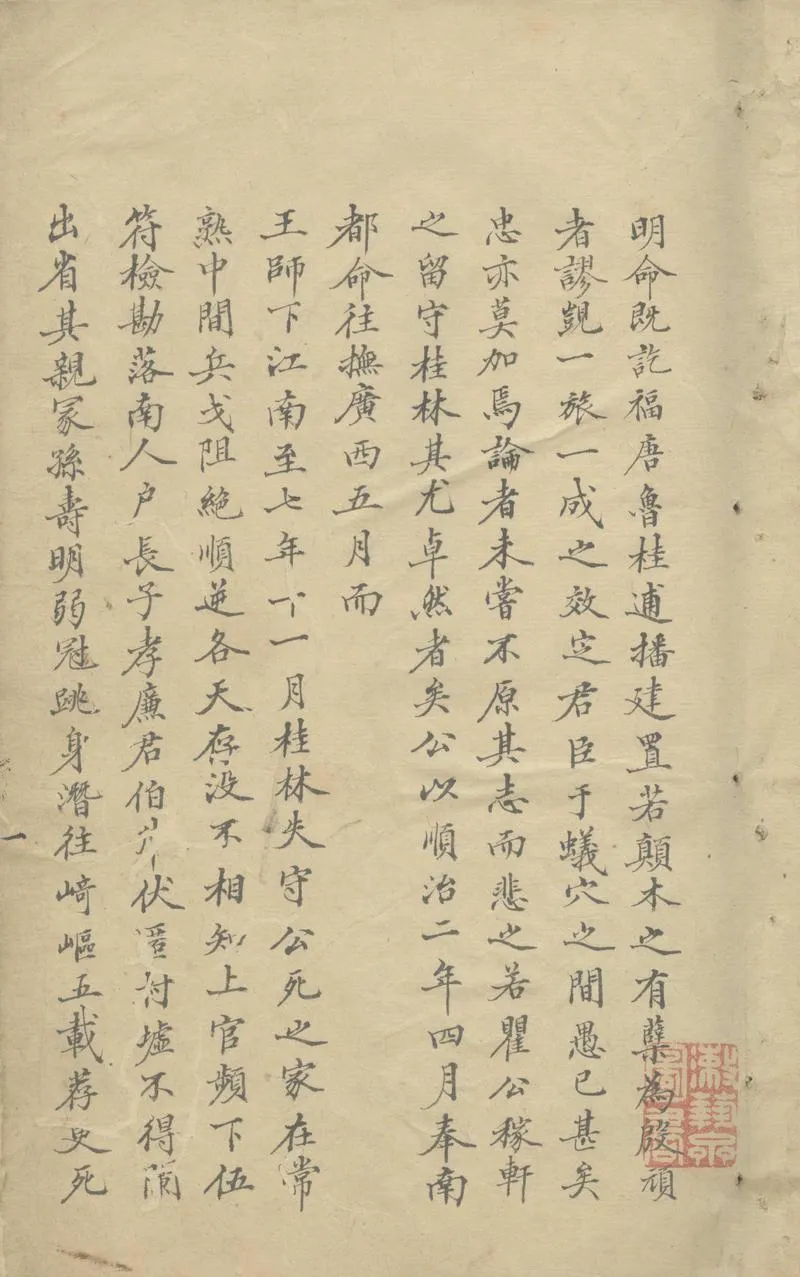 明命既訖福唐魯桂逋播建置若顛木之有櫱為殷頑
者謬覬一旅一成之效定君臣于蟻穴之間愚已甚矣
忠亦莫加焉論者未嘗不原其志而悲之若瞿公稼軒
之留守桂林其尤卓然者矣公以順治二年四月奉南
都命往撫廣西五月而
王師下江南至七年十一月桂林失守公死之家在常
熟中間兵戈阻絕順逆各天存没不相知上官頻下伍
符檢勘落南人户長子孝廉君伯升伏匿村墟不得闌
出省其親冢孫壽明弱冠跳身潛往崎嶇五載荐更死
一